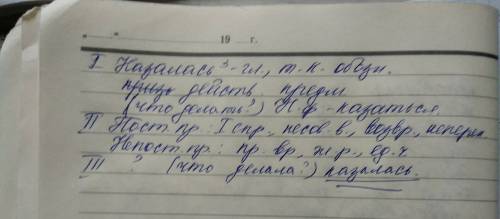 "     " 19     г.
I Казалась³ - гл., т.к. обозн.
действ. предм
(что делать?) Н.ф - казаться
II Пост. пр: I спр., несов. в., возвр., неперех.
Непост. пр.: пр. вр, ж.р., ед. ч.
III ? (что делала?) казалась.